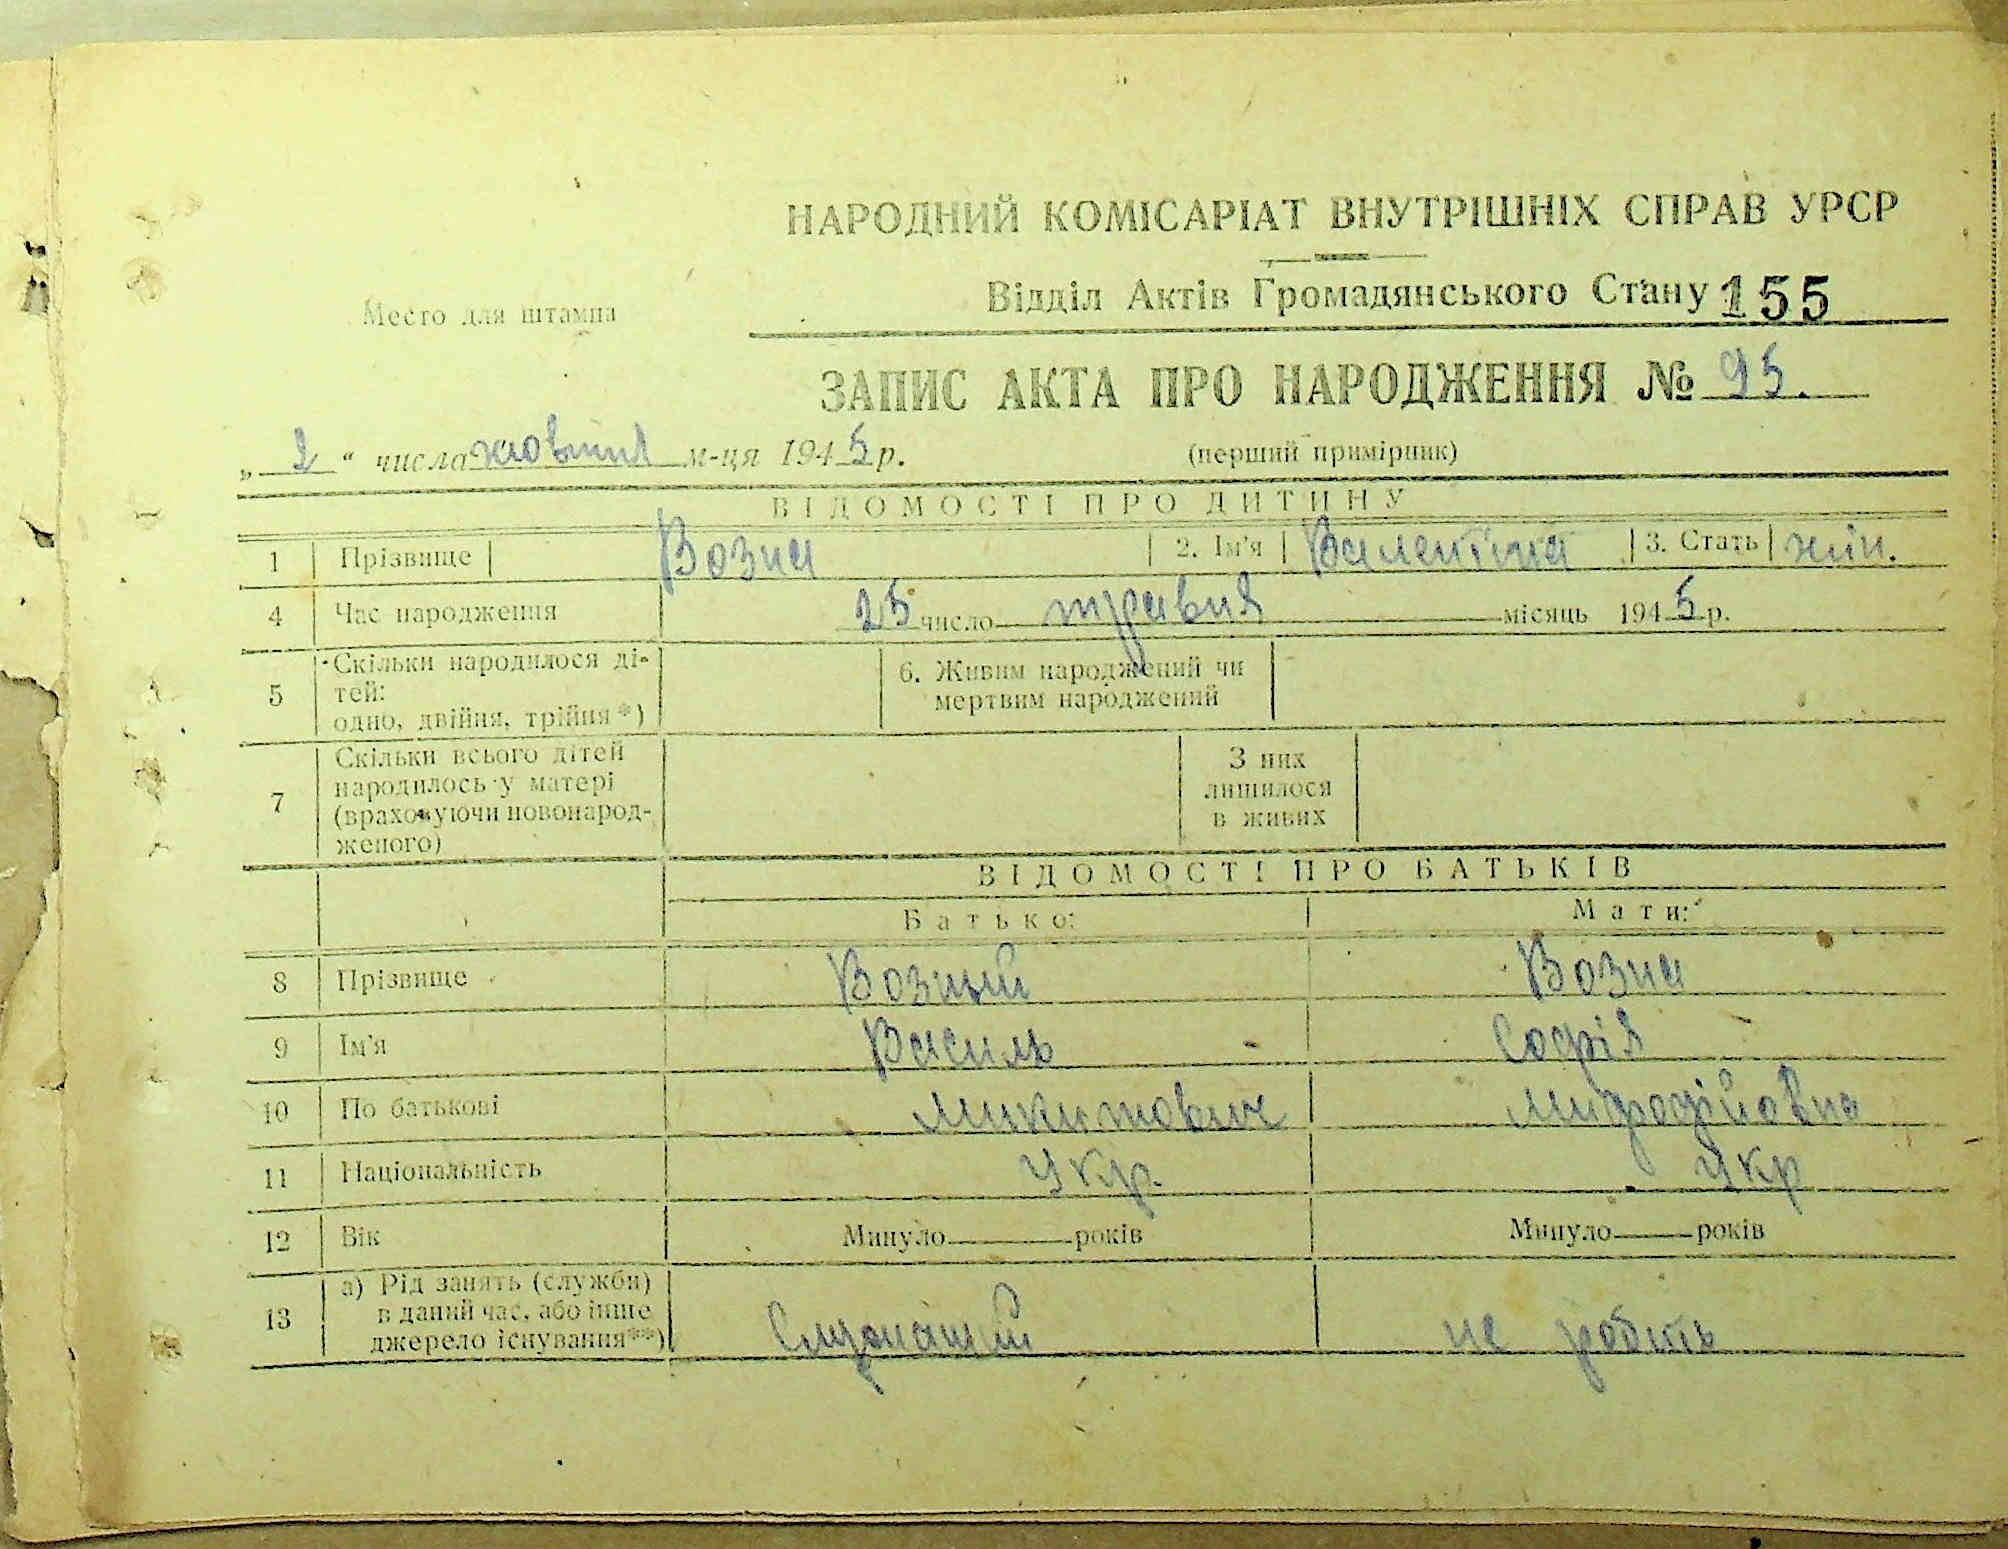 НАРОДНИЙ КОМІСАРІАТ ВНУТРІШНІХ СПРАВ УРСР
Место для штампа
Відділ Актів Громадянського Стану 155
ЗАПИС АКТА ПРО НАРОДЖЕННЯ № 95.
„ 2 “ числа жовтня м-ця 1945 р.
(перший примірник)
ВІДОМОСТІ ПРО ДИТИНУ
1 Прізвище Возна 2. Ім'я Валентина 3. Стать жін.
4 Час народження 25 число травня місяць 1945 р.
5 Скільки народилося ді-
тей:
одно, двійня, трійня*)
6. Живим народжений чи
мертвим народжений
7 Скільки всього дітей
народилось у матері
(враховуючи новонарод-
женого)
З них
лишилося
в живих
ВІДОМОСТІ ПРО БАТЬКІВ
Батько: Мати:
8 Прізвище Возний Возна
9 Ім'я Василь Софія
10 По батькові Микитович Мифодійовна
11 Національність Укр. Укр
12 Вік Минуло років Минуло років
13 а) Рід занять (служби)
в даний час, або інше
джерело існування**)
Служащий не робить